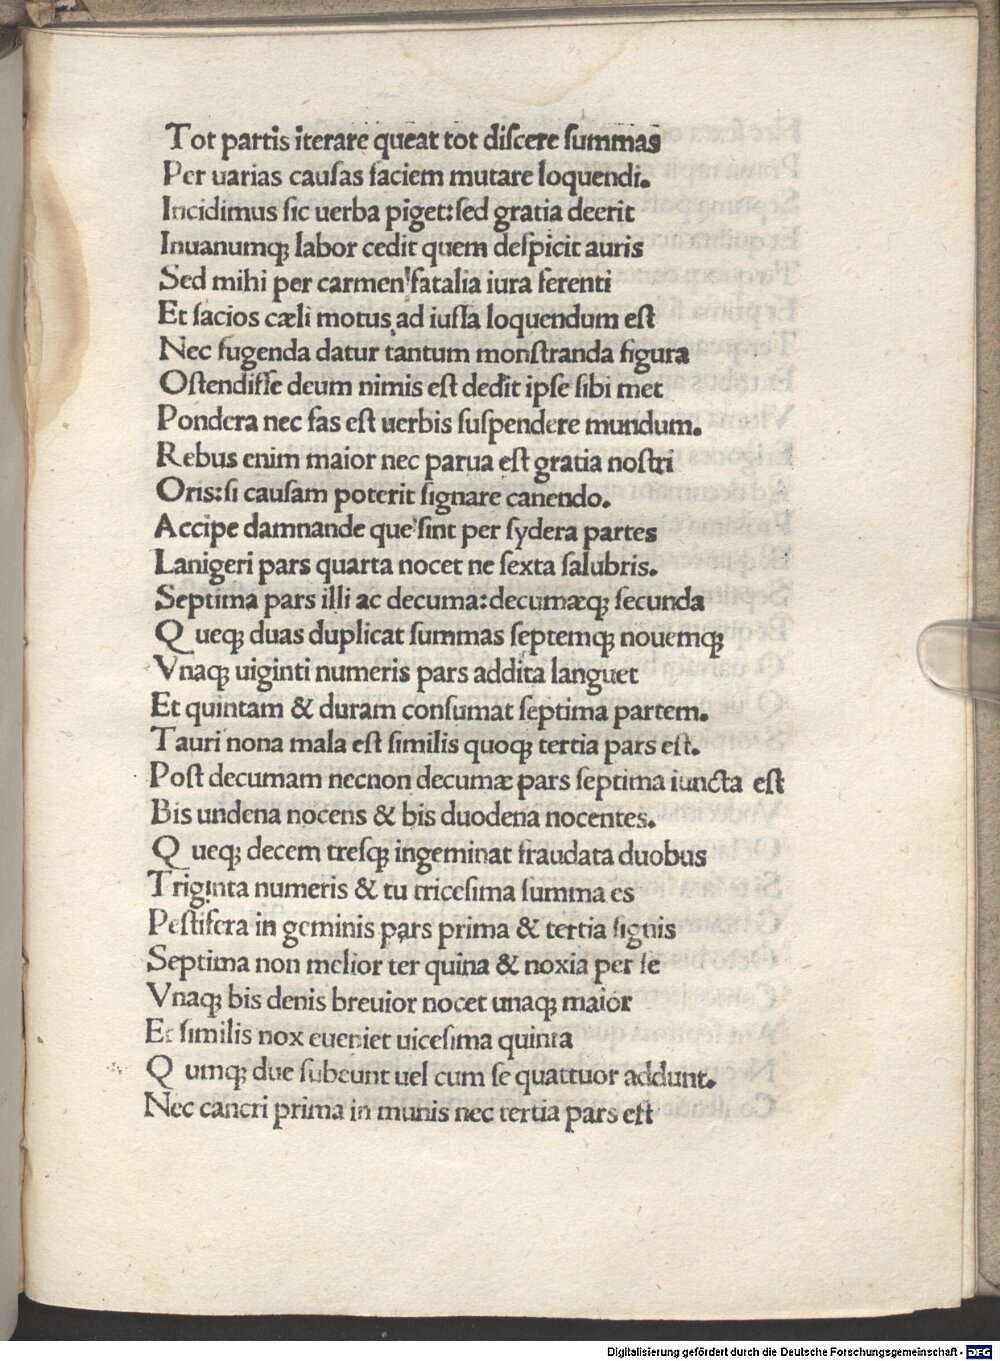 Tot partis iterare queat tot diſcere ſummas
Per uarias cauſas faciem mutare loquendi.
Incidimus ſic uerba piget:ſed gratia deerit
Inuanumqꝫ labor cedit quem deſpicit auris
Sed mihi per carmen fatalia iura ferenti
Et facios cæli motus ad iuſſa loquendum eſt
Nec fugenda datur tantum monſtranda figura
Oſtendiſſe deum nimis eſt dedit ipſe ſibi met
Pondera nec fas eſt uerbis ſuſpendere mundum.
Rebus enim maior nec parua eſt gratia noſtri
Oris:ſi cauſam poterit ſignare canendo.
Accipe damnande que ſint per ſydera partes
Lanigeri pars quarta nocet ne ſexta ſalubris.
Septima pars illi ac decuma:decumæqꝫ ſecunda
Q ueqꝫ duas duplicat ſummas ſeptemqꝫ nouemqꝫ
Vnaqꝫ uiginti numeris pars addita languet
Et quintam & duram conſumat ſeptima partem.
Tauri nona mala eſt ſimilis quoqꝫ tertia pars eſt.
Poſt decumam necnon decumæ pars ſeptima iuncta eſt
Bis undena nocens & bis duodena nocentes.
Q ueqꝫ decem treſqꝫ ingeminat fraudata duobus
Triginta numeris & tu triceſima ſumma es
Peſtifera in geminis pars prima & tertia ſignis
Septima non melior ter quina & noxia per ſe
Vnaqꝫ bis denis breuior nocet unaqꝫ maior
Et ſimilis nox eueniet uiceſima quinta
Q umqꝫ due ſubeunt uel cum ſe quattuor addunt.
Nec cancri prima in munis nec tertia pars eſt
Digitalisierung gefördert durch die Deutsche Forschungsgemeinschaft - DFG